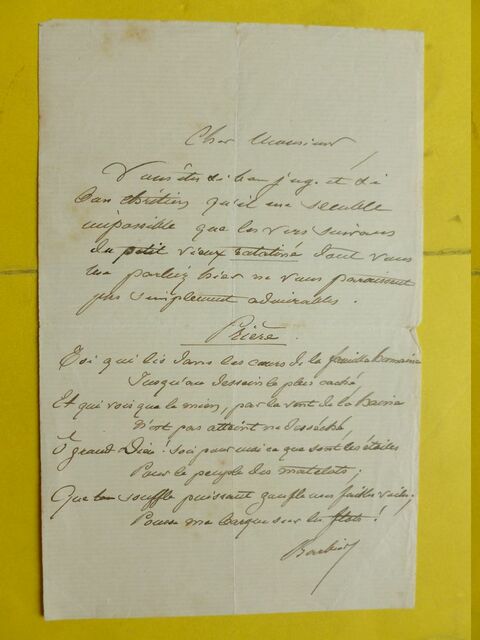 Cher Monsieur
Vous êtes si bon juge et si
bon chrétien qu'il me semble
impossible que les vers suivans
du petit vieux ratatiné dont vous
me parliez hier ne vous paraissent
pas simplement admirables.
Prière.
Toi qui lis dans les cœurs de la famille humaine
Jusqu'au dessein le plus caché
Et qui vois que le mien, par le vent de la haine
N'est pas atteint ne desséché,
Ô grand Dieu! sois pour moi ce que sont les étoiles
Pour le peuple des matelots;
Que ton souffle puissant gonfle mes faibles voiles,
Pousse ma barque sur les flots!